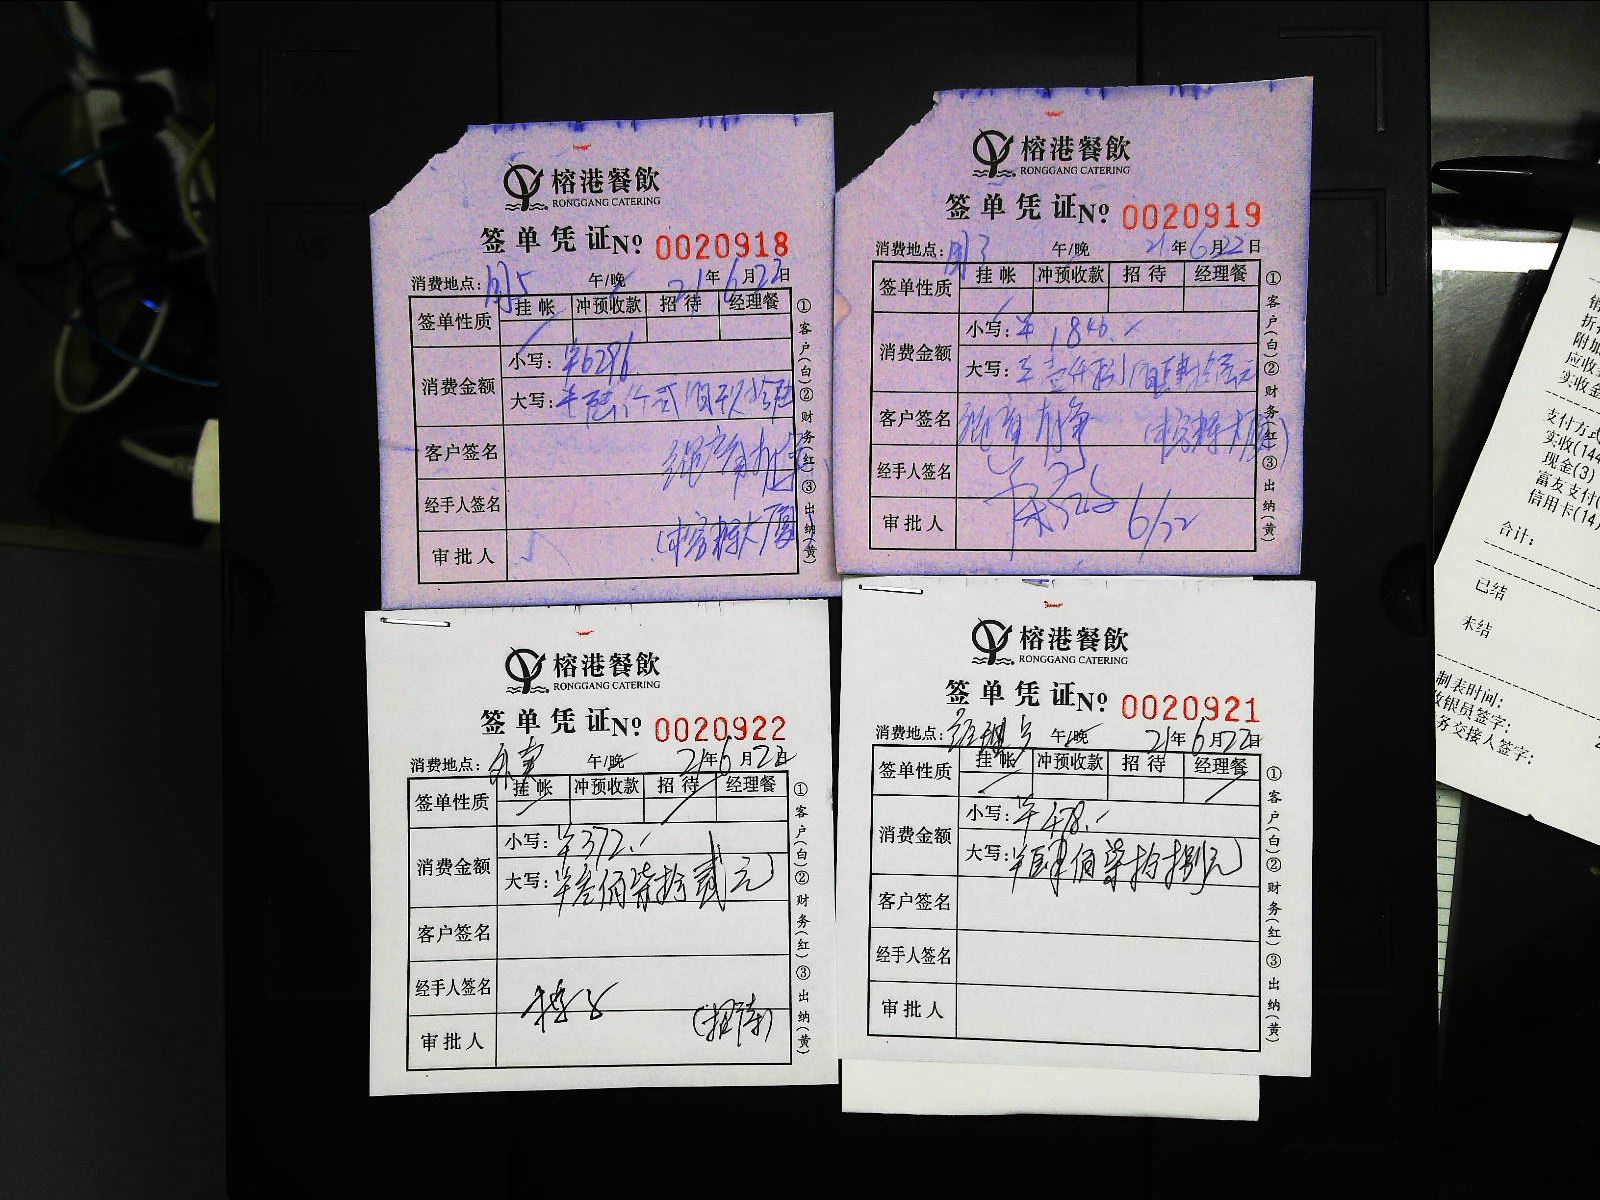 榕港餐飲
RONGGANG CATERING
签单凭证 No 0020918
消费地点: 午/晚 21年6月22日
签单性质 挂帐 冲预收款 招待 经理餐
消费金额
小写: ¥6286
大写:
客户签名
经手人签名
审批人
①客户(白)②财务(红)③出纳(黄)
榕港餐飲
RONGGANG CATERING
签单凭证 No 0020919
消费地点: 午/晚 21年6月22日
签单性质 挂帐 冲预收款 招待 经理餐
消费金额
小写: ¥1846.
大写:
客户签名
经手人签名
审批人 6/22
①客户(白)②财务(红)③出纳(黄)
榕港餐飲
RONGGANG CATERING
签单凭证 No 0020922
消费地点: 外卖 午/晚 21年6月22日
签单性质 挂帐 冲预收款 招待 经理餐
消费金额
小写: ¥372.
大写: ¥叁佰柒拾贰元
客户签名
经手人签名
审批人 (招待)
①客户(白)②财务(红)③出纳(黄)
榕港餐飲
RONGGANG CATERING
签单凭证 No 0020921
消费地点: 午/晚 21年6月22日
签单性质 挂帐 冲预收款 招待 经理餐
消费金额
小写: ¥478.
大写: ¥肆佰柒拾捌元
客户签名
经手人签名
审批人
①客户(白)②财务(红)③出纳(黄)
销
折
附加
应收
实收金
支付方式
实收(144
现金(3)
富友支付(
信用卡(14)
合计:
已结
未结
制表时间:
收银员签字:
务交接人签字: